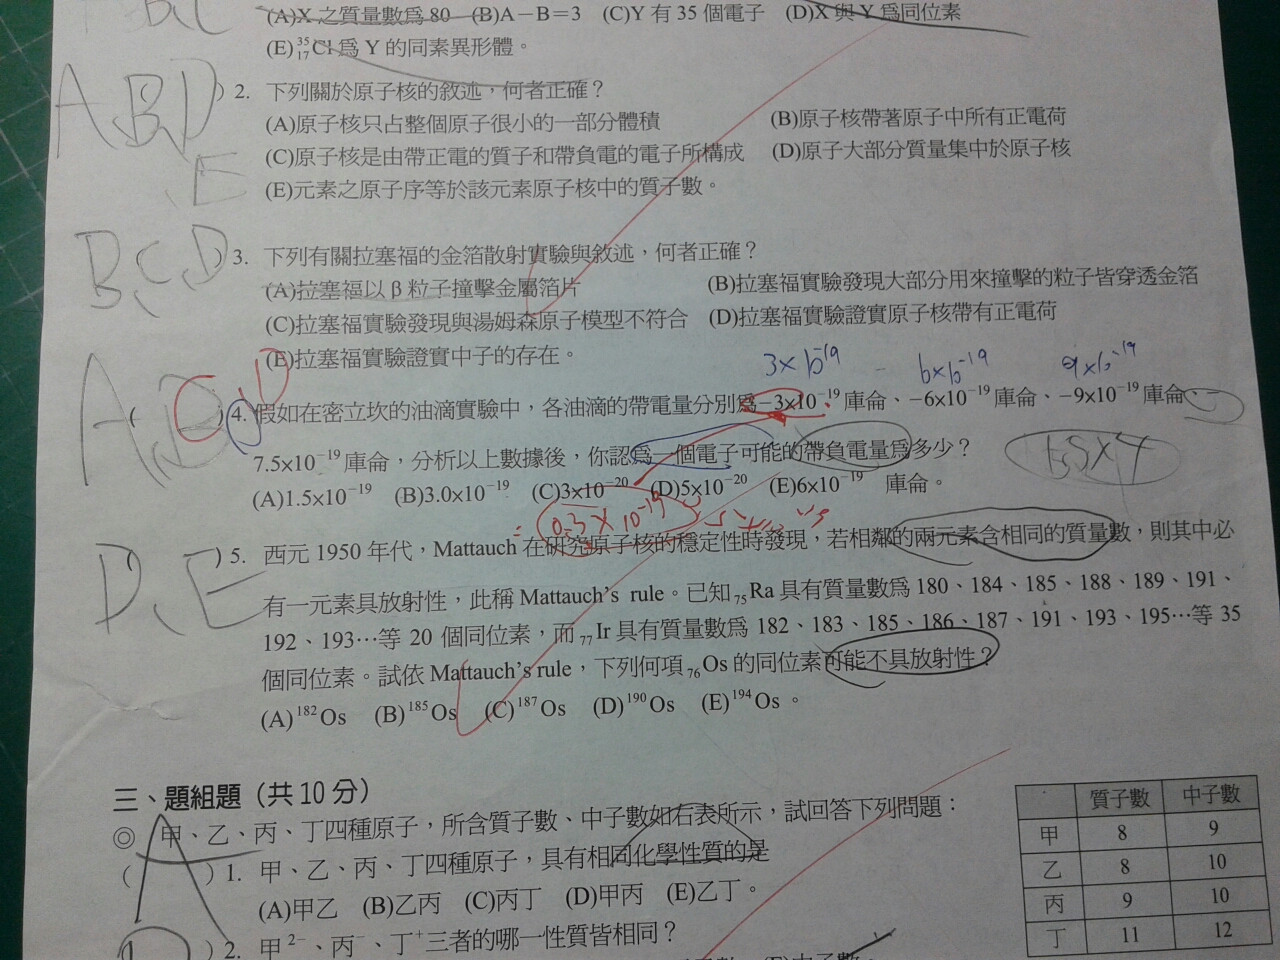 (A)X 之質量數為 80 (B)A－B＝3 (C)Y 有 35 個電子 (D)X 與 Y 為同位素
(E)³⁵₁₇Cl 為 Y 的同素異形體。
A、B、D、E
) 2. 下列關於原子核的敘述，何者正確？
(A)原子核只占整個原子很小的一部分體積 (B)原子核帶著原子中所有正電荷
(C)原子核是由帶正電的質子和帶負電的電子所構成 (D)原子大部分質量集中於原子核
(E)元素之原子序等於該元素原子核中的質子數。
B、C、D
) 3. 下列有關拉塞福的金箔散射實驗與敘述，何者正確？
(A)拉塞福以 β 粒子撞擊金屬箔片 (B)拉塞福實驗發現大部分用來撞擊的粒子皆穿透金箔
(C)拉塞福實驗發現與湯姆森原子模型不符合 (D)拉塞福實驗證實原子核帶有正電荷
(E)拉塞福實驗證實中子的存在。
3×10⁻¹⁹ 6×10⁻¹⁹ 9×10⁻¹⁹
A、C、D
( ) 4. 假如在密立坎的油滴實驗中，各油滴的帶電量分別為−3×10⁻¹⁹庫侖、−6×10⁻¹⁹庫侖、−9×10⁻¹⁹庫侖、−
7.5×10⁻¹⁹庫侖，分析以上數據後，你認為一個電子可能的帶負電量為多少？
(A)1.5×10⁻¹⁹ (B)3.0×10⁻¹⁹ (C)3×10⁻²⁰ (D)5×10⁻²⁰ (E)6×10⁻¹⁹ 庫侖。
= 0.3×10⁻¹⁹
D、E
) 5. 西元 1950 年代，Mattauch 在研究原子核的穩定性時發現，若相鄰的兩元素含相同的質量數，則其中必
有一元素具放射性，此稱 Mattauch's rule。已知₇₅Ra 具有質量數為 180、184、185、188、189、191、
192、193…等 20 個同位素，而₇₇Ir 具有質量數為 182、183、185、186、187、191、193、195…等 35
個同位素。試依 Mattauch's rule，下列何項₇₆Os 的同位素可能不具放射性？
(A)¹⁸²Os (B)¹⁸⁵Os (C)¹⁸⁷Os (D)¹⁹⁰Os (E)¹⁹⁴Os 。
三、題組題（共 10 分）
◎ 甲、乙、丙、丁四種原子，所含質子數、中子數如右表所示，試回答下列問題：
A
( ) 1. 甲、乙、丙、丁四種原子，具有相同化學性質的是
(A)甲乙 (B)乙丙 (C)丙丁 (D)甲丙 (E)乙丁。
) 2. 甲²⁻、丙⁻、丁⁺三者的哪一性質皆相同？
質子數 中子數
甲 8 9
乙 8 10
丙 9 10
丁 11 12